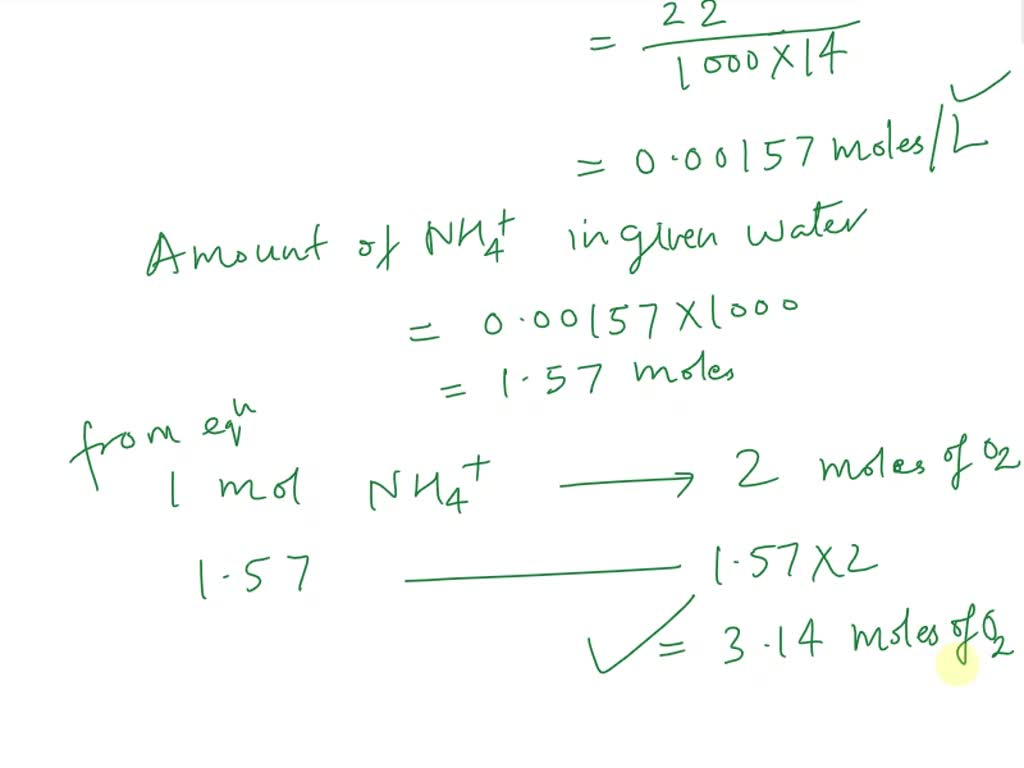 = 22 / 1000 × 14
= 0.00157 moles/L ✓
Amount of NH₄⁺ in given water
= 0.00157 × 1000
= 1.57 moles
from eqⁿ
1 mol NH₄⁺ → 2 moles of O₂
1.57 — 1.57 × 2
✓ = 3.14 moles of O₂